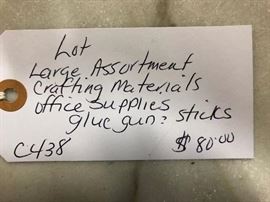 Lot
Large Assortment
Crafting Materials
office Supplies
glue gun? sticks
C438 $80.00